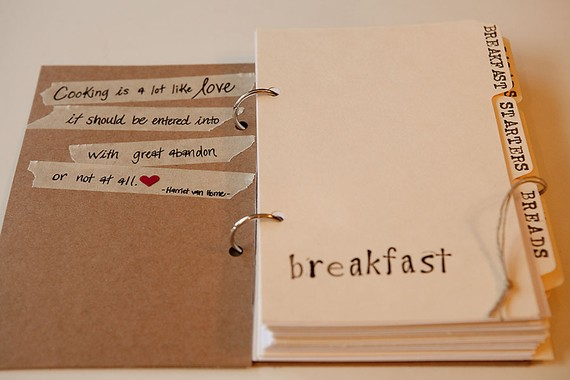 Cooking is a lot like love
it should be entered into
with great abandon
or not at all.
-Harriet van Horne-
breakfast
BREAKFASTS
STARTERS
BREADS